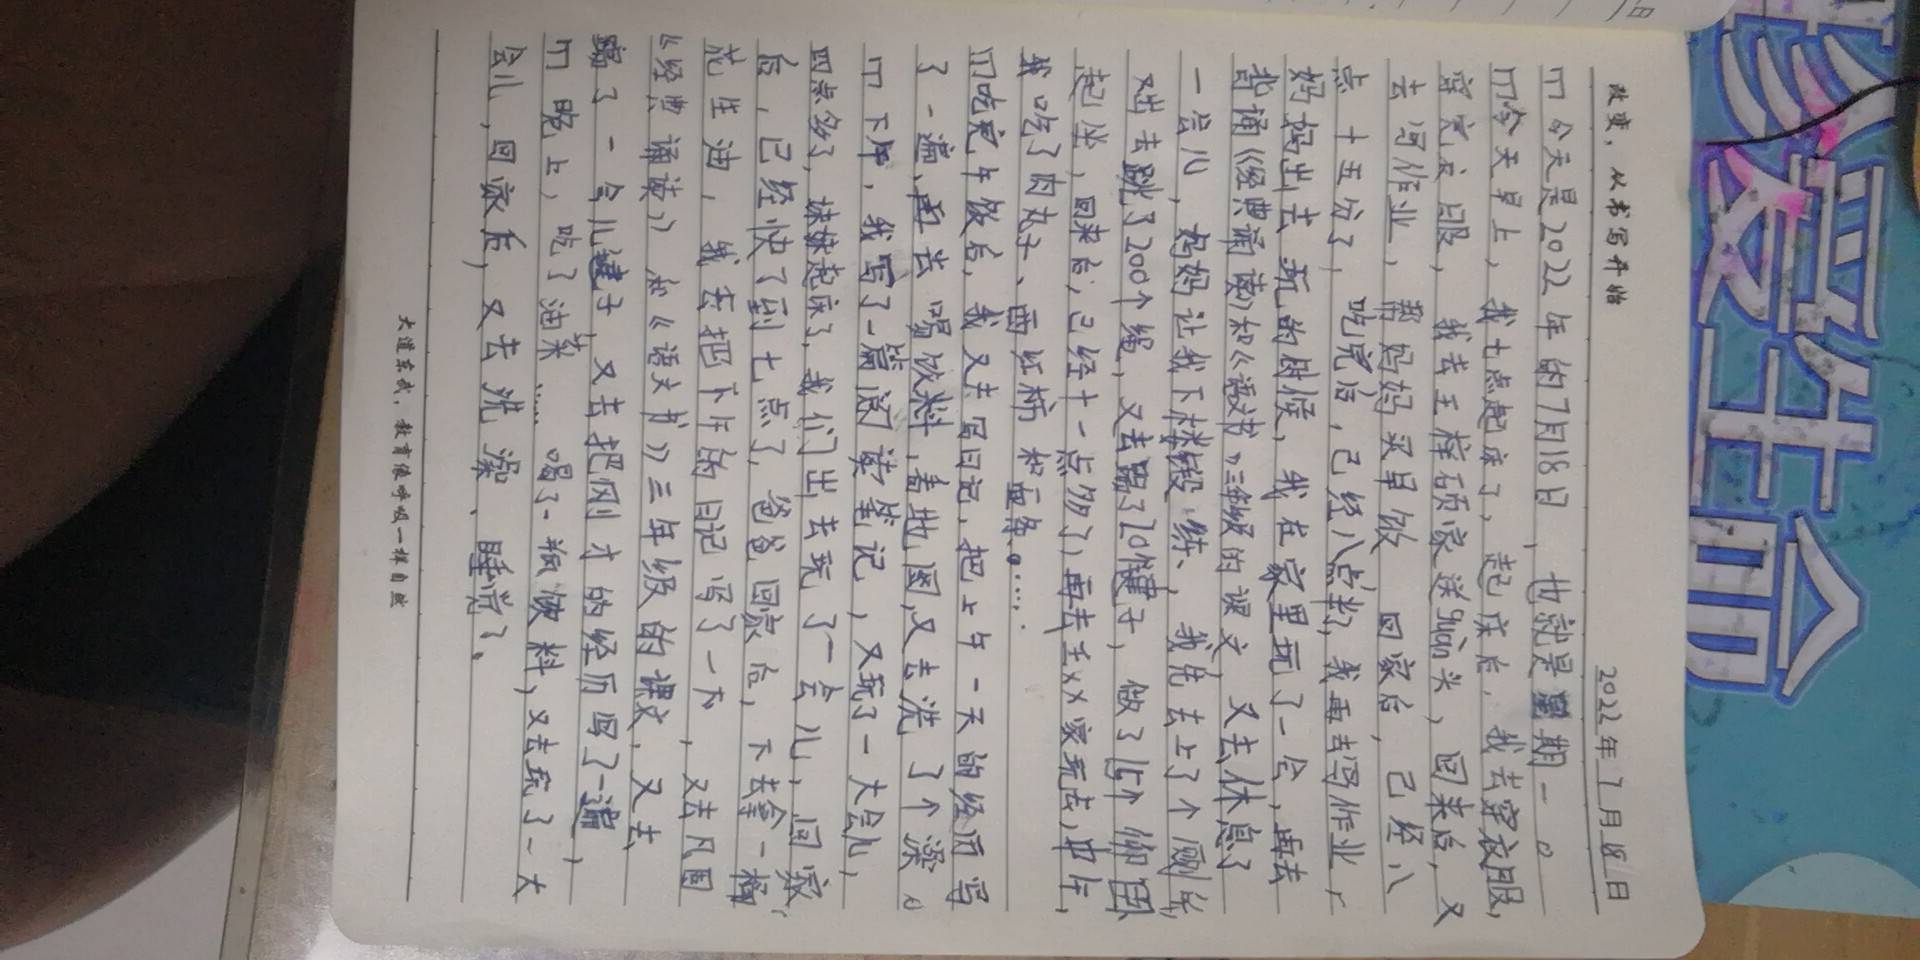 改变，从书写开始
2022年7月18日
今天是2022年的7月18日，也就是星期一。
今天早上，我七点起床了，起床后，我去穿衣服，
穿完衣服，我去王梓硕家送guàn头，回来后，又
去写作业，帮妈妈买早饭，回家后，已经八
点十五分了，吃完后，已经八点半，我再去写作业，
妈妈出去玩的时候，我在家里玩了一会，再去
背诵《经典诵读》和《语文书》三年级的课文，又去休息了
一会儿，妈妈让我下楼锻练，我先去上了个厕所，
又出去跳了200个绳，又去踢了20个毽子，做了15个仰卧
起坐，回来后，已经十一点多了，再去王xx家玩去，中午，
我吃了肉丸子、西红柿和面条。……
吃完午饭后，我又去写日记，把上午一天的经历写
了一遍，再去喝饮料，看地图，又去洗了个澡。
下午，我写了一篇阅读笔记，又玩了一大会儿，
四点多了，妹妹起床了，我们出去玩了一会儿，回家
后，已经快了到七点了，爸爸回家后，下去拿一桶
花生油，我去把下午的日记写了一下，又去凡固
《经典诵读》和《语文书》三年级的课文，又去
踢了一会儿毽子，又去把刚才的经历写了一遍，
晚上，吃了油菜……喝了一瓶饮料，又去玩了一大
会儿，回家后，又去洗澡、睡觉了。
大道至成，教育像呼吸一样自然
爱生命